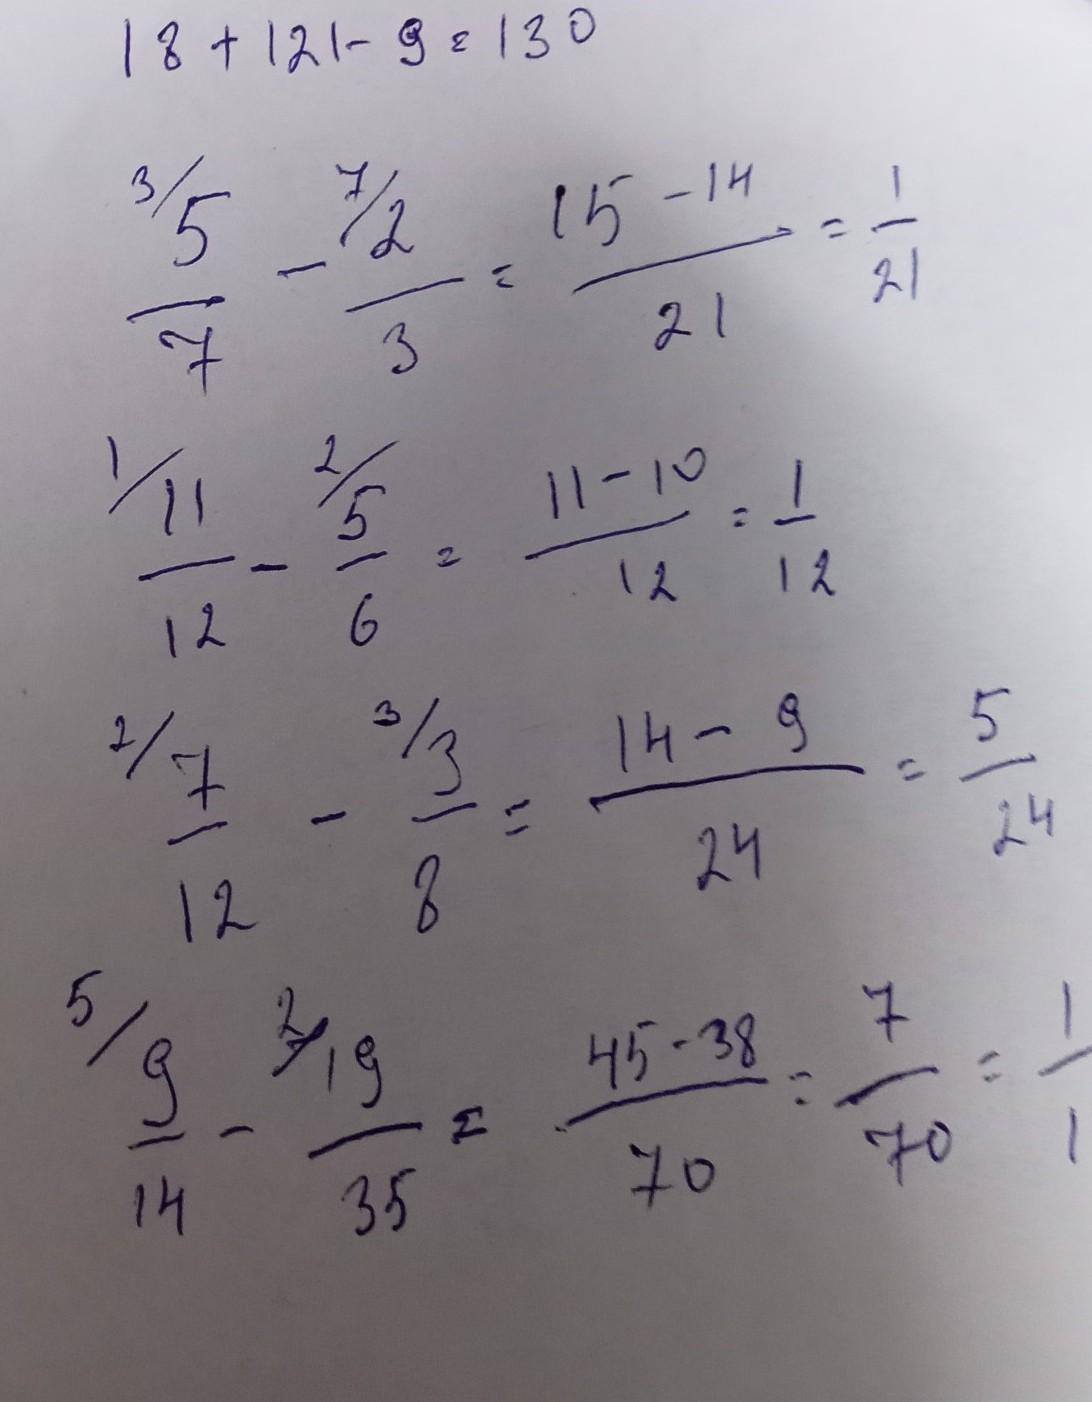 18 + 121 - 9 = 130
3/ 5/7 - 7/ 2/3 = (15 - 14)/21 = 1/21
1/ 11/12 - 2/ 5/6 = (11 - 10)/12 = 1/12
2/ 7/12 - 3/ 3/8 = (14 - 9)/24 = 5/24
5/ 9/14 - 2/ 19/35 = (45 - 38)/70 = 7/70 = 1/1